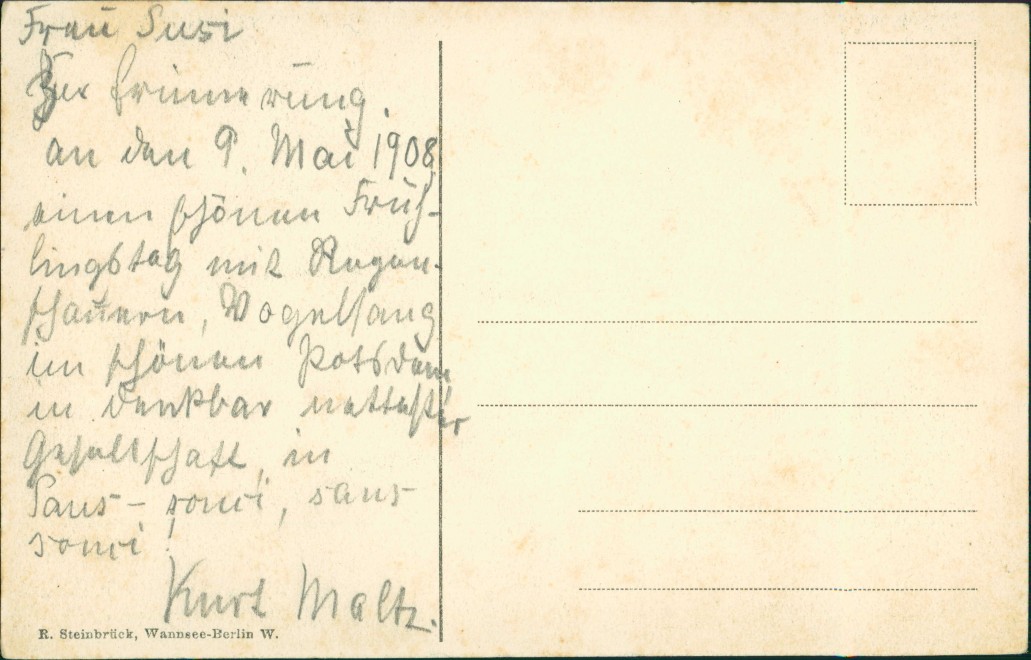 Frau Susi
Zur Erinnerung
an den 9. Mai 1908,
einen schönen Früh-
lingstag mit Regen-
schauern, Vogelsang
im schönen Potsdam
in denkbar nettester
Gesellschaft, in
Sans-souci, sans
souci!
Kurt Maltz.
R. Steinbrück, Wannsee-Berlin W.